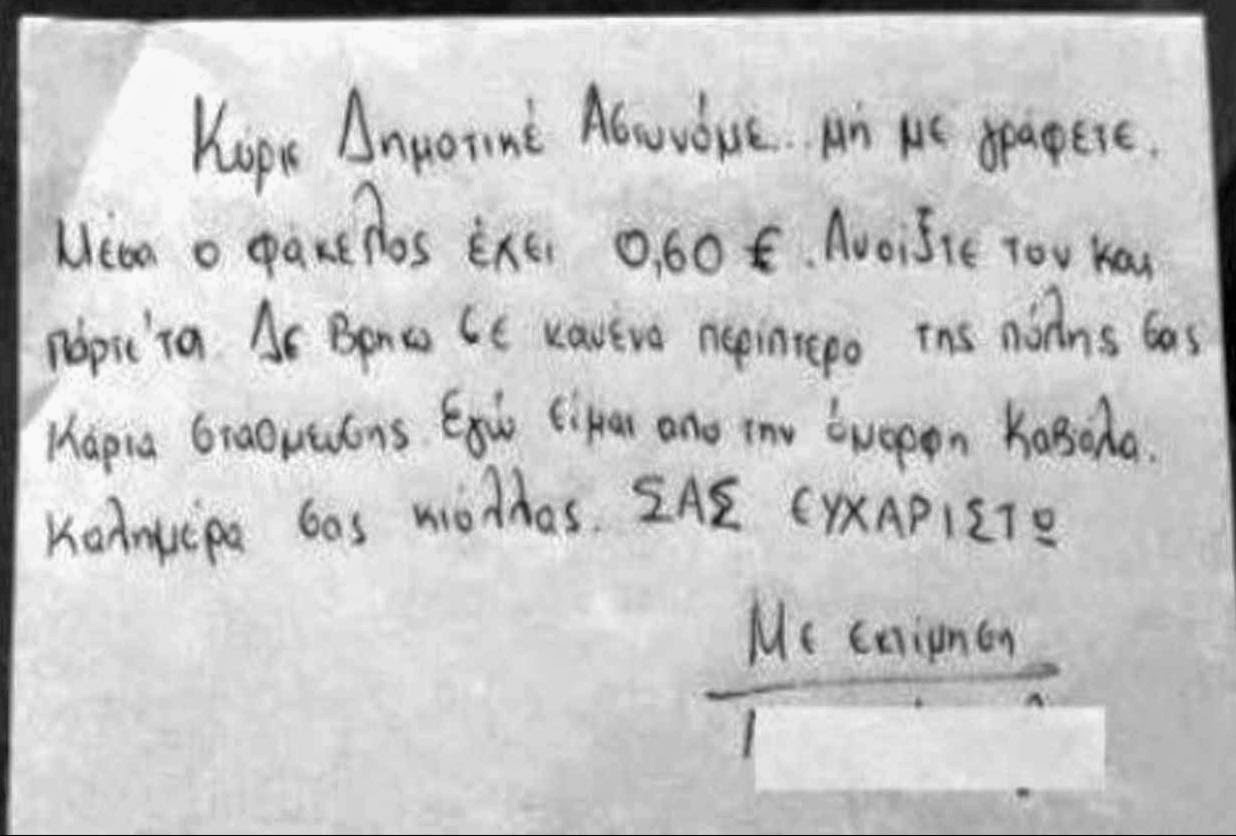 Κύριε Δημοτικέ Αστυνόμε.. μή με γράφετε.
Μέσα ο φάκελος έχει 0,60 €. Ανοίξτε τον και
πάρτε 'τα. Δε βρήκω σε κανένα περίπτερο της πόλης σας
κάρτα σταθμευσης. Εγώ είμαι απο την όμορφη Καβάλα.
Καλημέρα σας κιόλλας. ΣΑΣ ΕΥΧΑΡΙΣΤΩ
Με εκτίμηση